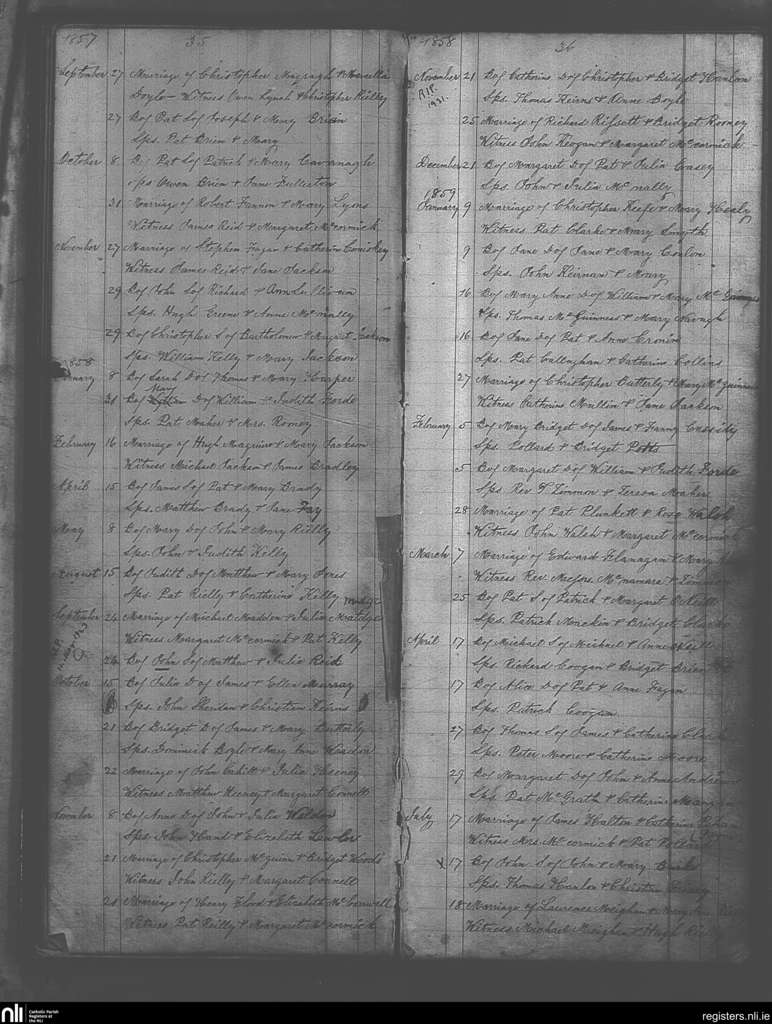 1857 35
September 27 Marriage of Christopher & Marcella
Doyle – Witness Owen Lynch & Christopher Rielly
27 B of Pat S of Joseph & Mary Brien
Sps. Pat Brien & Mary
October 8 B of Pat S of Patrick & Mary Cavanagh
Sps Owen Brien & Jane
31 Marriage of Robert Fannon & Mary Lyons
Witness James Reid & Margaret McCormick
November 27 Marriage of Stephen Fagan & Catherine
Witness James Reid & Jane Jackson
29 B of John S of Richard & Ann
Sps. Hugh Greene & Anne McNally
29 B of Christopher S of Bartholomew & Margret Jackson
Sps. William Kelly & Mary Jackson
1858
January 8 B of Sarah D of Thomas & Mary Harper
Mary
31 B of D of William & Judith Forde
Sps. Pat Maher & Mrs. Rooney
February 16 Marriage of Hugh & Mary Jackson
Witness Michael Jackson & James Bradley
April 15 B of James S of Pat & Mary Brady
Sps. Matthew Brady & Jane Fay
May 8 B of Mary D of John & Mary Rielly
Sps. John & Judith Kelly
August 15 B of Judith D of Matthew & Mary
Sps. Pat Rielly & Catherine Kelly
September 24 Marriage of Michael Madden & Julia
Witness Margaret McCormick & Pat Kelly
26 B of John S of Matthew & Julia Reid
October 15 B of Julia D of James & Ellen Murray
Sps. John Sheridan & Christian
21 B of Bridget D of James & Mary Butterly
Sps. Dominick Boyle & Mary Anne
22 Marriage of John Cahill & Julia Heeney
Witness Matthew Heeney & Margaret Connell
November 8 B of Anne D of John & Julia Weldon
Sps. John Hand & Elizabeth Lawlor
21 Marriage of Christopher McGuinn & Bridget Woods
Witness John Rielly & Margaret Connell
28 Marriage of Henry Flood & Elizabeth McConnell
Witness Pat Reilly & Margaret McCormick
1858 36
November 21 B of Catherine D of Christopher & Bridget Hanlon
R.I.P. 1931. Sps. Thomas Keirns & Anne Boyle
25 Marriage of Richard & Bridget Rooney
Witness John Keogan & Margaret McCormick
December 21 B of Margaret D of Pat & Julia Casey
Sps. John & Julia McNally
1859
January 9 Marriage of Christopher Keefe & Mary Healy
Witness Pat Clarke & Mary Smyth
9 B of Jane D of Jane & Mary Conlon
Sps. John Keirnan & Mary
16 B of Mary Anne D of William & Mary
Sps. Thomas McGuinness & Mary
16 B of Jane D of Pat & Anne Cronin
Sps. Pat Callaghan & Catherine Collins
27 Marriage of Christopher Butterly & Mary
Witness Catherine Mullin & Jane Jackson
February 5 B of Mary Bridget D of James & Fanny Cassidy
Sps. Pollard & Bridget Potts
5 B of Margaret D of William & Judith Forde
Sps Rev & Teresa Maher
28 Marriage of Pat Plunkett & Rose Walsh
Witness John Walsh & Margaret McCormick
March 7 Marriage of Edward Flanagan & Mary
Witness Rev. McNamara &
25 B of Pat S of Patrick & Margaret
Sps. Patrick & Bridget
April 17 B of Michael S of Michael & Anne
Sps Richard Coogan & Bridget
17 B of Alice D of Pat & Anne Fagan
Sps. Patrick Coogan
27 B of Thomas S of James & Catherine
Sps. Peter Moore & Catherine Moore
29 B of Margaret D of John & Anne
Sps. Pat McGrath & Catherine
July 17 Marriage of James Halton & Catherine
Witness Mrs. McCormick & Pat
x 17 B of John S of John & Mary Burke
Sps. Thomas Hanlon & Christina
18 Marriage of Laurence Meighan & Mary
Witness Michael Meighan & Hugh
nli Catholic Parish Registers at the NLI
registers.nli.ie